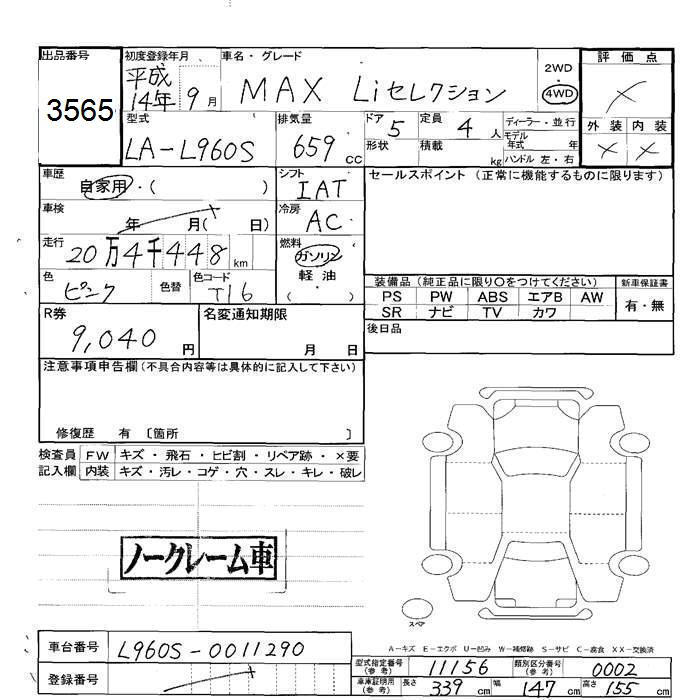 出品番号
3565
初度登録年月
平成
14年 9月
車名・グレード
MAX Liセレクション
2WD
・
4WD
評価点
×
外装 内装
× ×
型式
LA-L960S
排気量
659 CC
ドア 5
定員 4 人
形状
積載 kg
ディーラー・並行
モデル
年式 年
ハンドル 左・右
車歴
自家用・( )
シフト
IAT
セールスポイント (正常に機能するものに限ります)
車検
年 月( 日)
冷房
AC
走行
20万4千448 km
燃料
ガソリン
軽油
( )
色
ピンク
色替
色コード
T16
装備品 (純正品に限り○をつけてください)
PS PW ABS エアB AW
SR ナビ TV カワ
新車保証書
有・無
R券
9,040 円
名変通知期限
月 日
後日品
注意事項申告欄 (不具合内容等は具体的に記入して下さい)
修復歴 有 〔箇所 〕
検査員
記入欄
FW キズ・飛石・ヒビ割・リペア跡・×要
内装 キズ・汚レ・コゲ・穴・スレ・キレ・破レ
ノークレーム車
スペア
A-キズ E-エクボ U-凹み W-補修跡 S-サビ C-腐食 XX-交換済
車台番号 L960S-0011290
登録番号
型式指定番号
(参考)
11156
類別区分番号
(参考)
0002
車庫証明用
(参考)
長さ 339 cm 幅 147 cm 高さ 155 cm